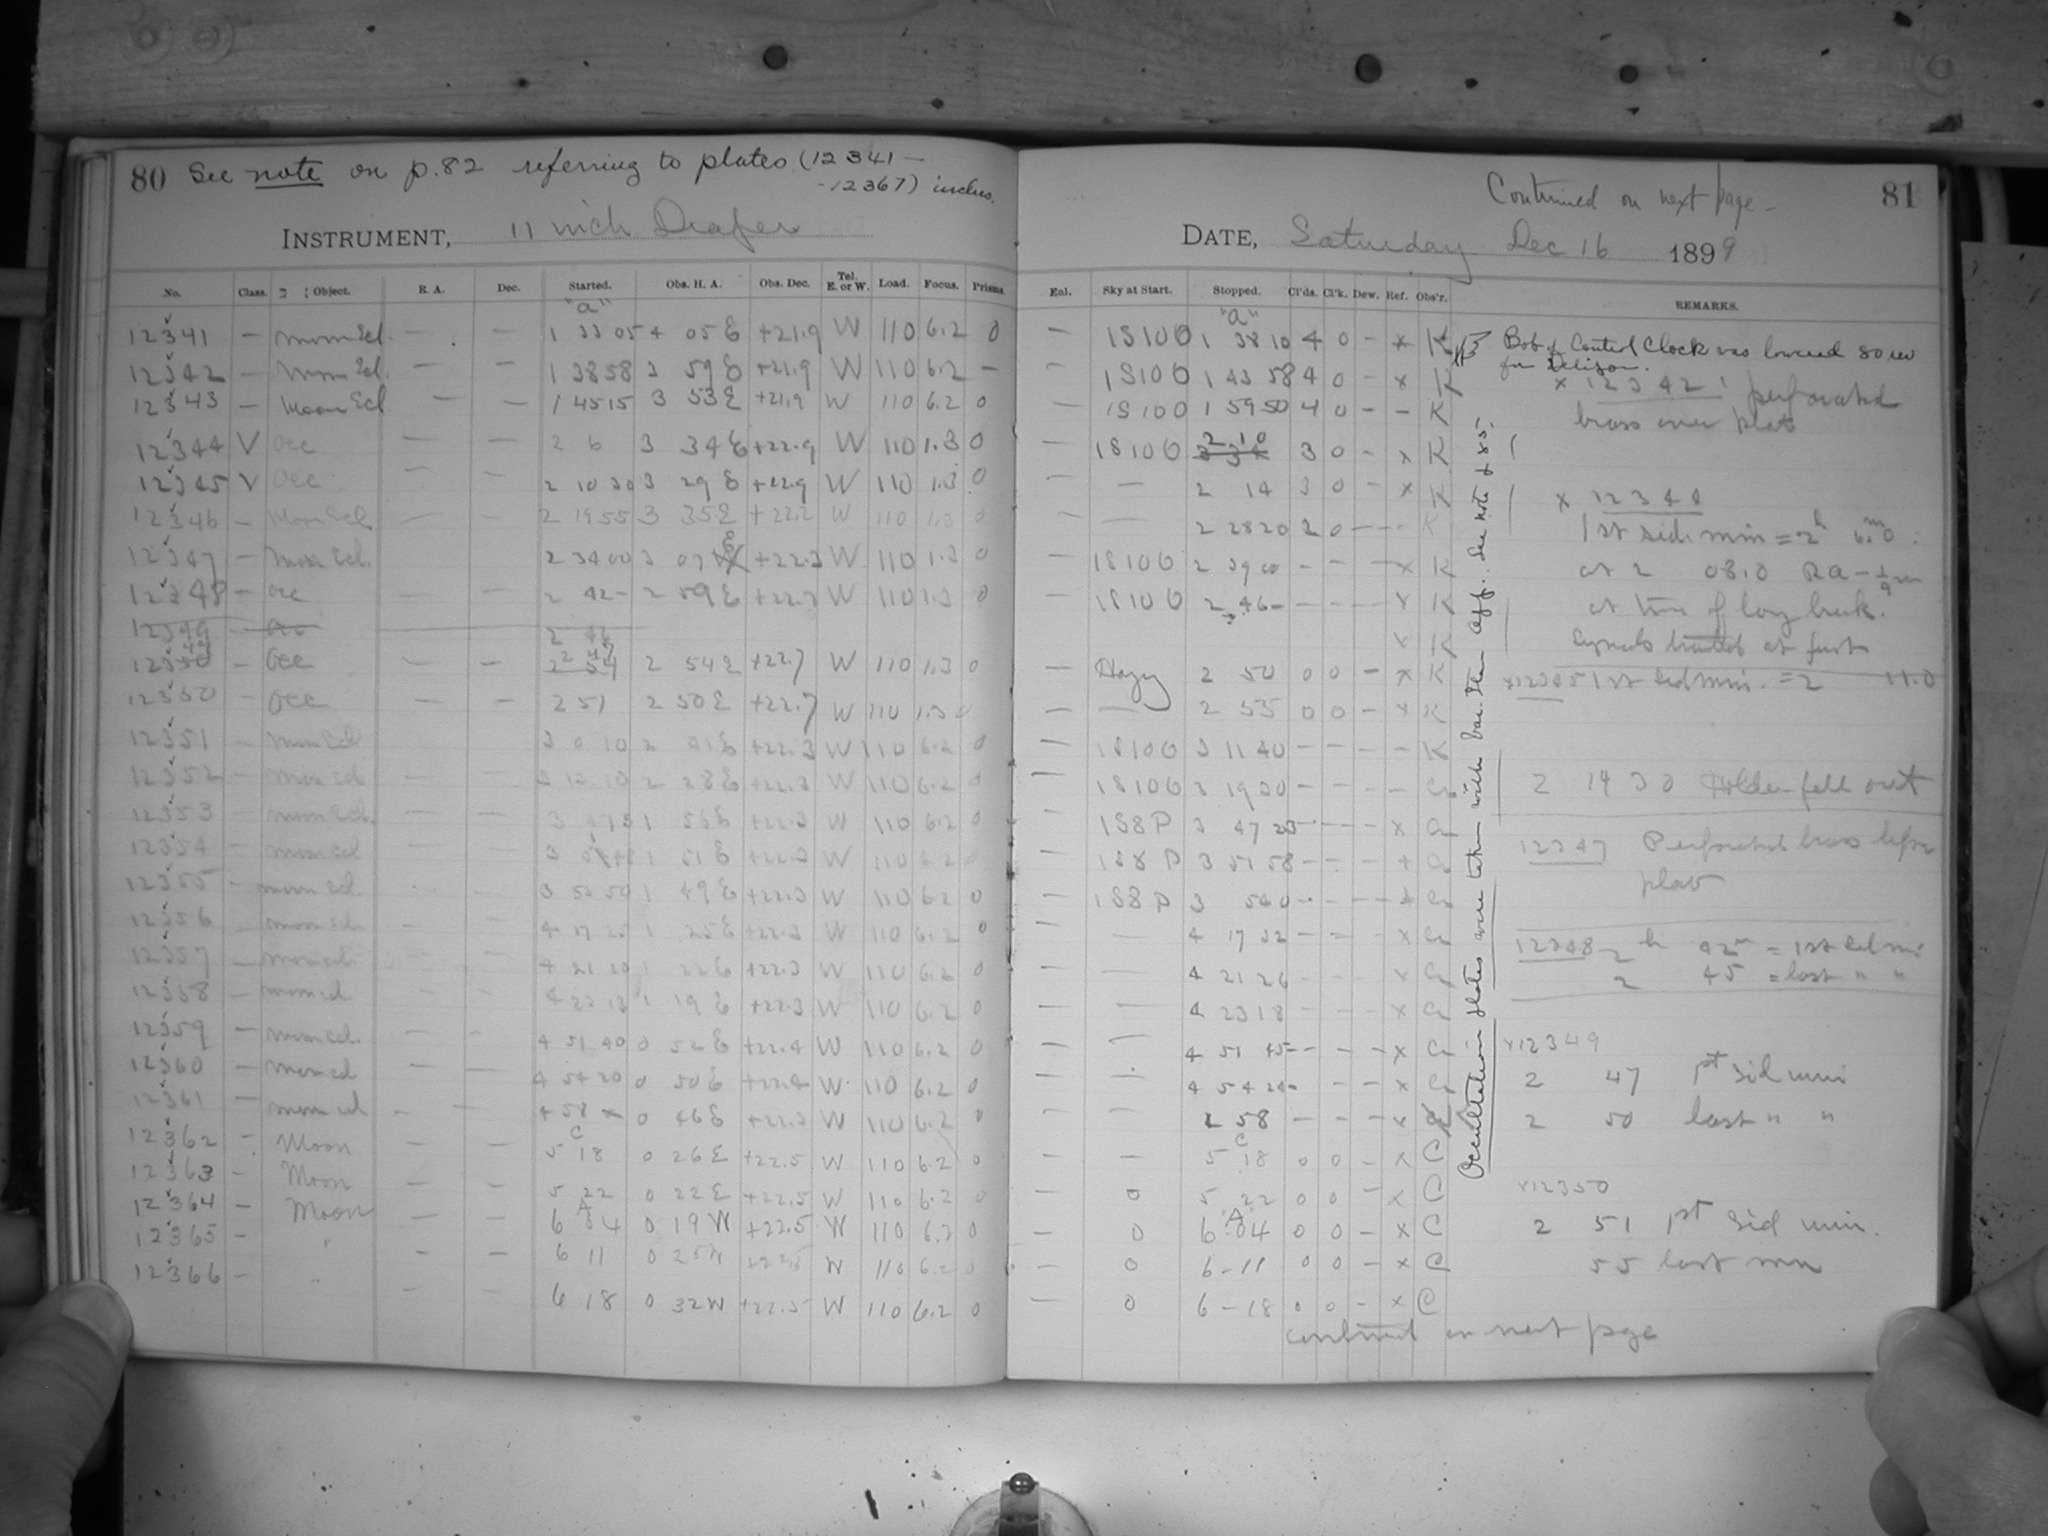 80 See note on p.82 referring to plates (12341 –
- 12367) inclus.
INSTRUMENT, 11 inch Draper
No. Class. Object. R. A. Dec. Started. Obs. H. A. Obs. Dec. Tel. E. or W. Load. Focus. Prisms.
"a"
12341 — Moon Ecl. — — 1 33 05 4 05 E +21.9 W 110 6.2 0
12342 — Moon Ecl. — — 1 38 58 3 59 E +21.9 W 110 6.2 —
12343 — Moon Ecl — — 1 45 15 3 53 E +21.9 W 110 6.2 0
12344 V Occ — — 2 6 3 34 E +22.9 W 110 1.3 0
12345 V Occ — — 2 10 30 3 29 E +22.9 W 110 1.3 0
12346 — Moon Ecl — — 2 19 55 3 35 E +22.2 W 110 1.3 0
12347 — Moon Ecl. 2 34 00 3 07 E +22.3 W 110 1.3 0
12348 — Occ — — 2 42 – 2 59 E +22.7 W 110 1.3 0
12349 — Occ 2 46
12350 49 — Occ — — 2 54 2 47 2 54 E +22.7 W 110 1.3 0
12350 — Occ — — 2 51 2 50 E +22.7 W 110 1.3 0
12351 — Moon Ecl 3 0 10 2 41 E +22.3 W 110 6.2 0
12352 — Moon Ecl — — 10 2 28 E +22.3 W 110 6.2 0
12353 — Moon Ecl. — — 3 47 1 56 E +22.3 W 110 6.2 0
12354 — Moon Ecl — — 3 1 51 E +22.3 W 110 6.2 0
12355 — Moon Ecl. — — 3 53 50 1 49 E +22.3 W 110 6.2 0
12356 — Moon Ecl — — 4 17 1 25 E +22.3 W 110 6.2 0
12357 — Moon Ecl — — 4 21 1 22 E +22.3 W 110 6.2 0
12358 — Moon Ecl — — 4 23 13 1 19 E +22.3 W 110 6.2 0
12359 — Moon Ecl. — — 4 51 40 0 52 E +22.4 W 110 6.2 0
12360 — Moon Ecl — — 4 54 20 0 50 E +22.4 W 110 6.2 0
12361 — Moon Ecl — — 4 58 0 46 E +22.3 W 110 6.2 0
12362 — Moon — — C 5 18 0 26 E +22.5 W 110 6.2 0
12363 — Moon — — 5 22 0 22 E +22.5 W 110 6.2 0
12364 — Moon — — "A" 6 04 0 19 W +22.5 W 110 6.2 0
12365 — " — — 6 11 0 25 W +22.5 W 110 6.2 0
12366 — " — — 6 18 0 32 W +22.5 W 110 6.2 0
Continued on next page – 81
DATE, Saturday Dec 16 1899
Enl. Sky at Start. Stopped. Cl'ds. Cl'k. Dew. Ref. Obs'r. REMARKS.
"a"
— 1S100 1 38 10 4 0 – x K
— 1S100 1 43 58 4 0 – x K
— 1S100 1 59 50 4 0 – – K
1S100 2 10 3 0 – x K
— 2 14 3 0 – x K
— 2 28 20 2 0 – – K
— 1S100 2 39 00 – – – x K
— 1S100 2 46 – – – – x K
x K
— Hazy 2 50 0 0 – x K
— — 2 55 0 0 – x K
— 1S100 3 11 40 – – – – K
— 1S100 3 19 20 – – – – Co
— 1S8P 3 47 23 – – – x Co
— 1S8P 3 51 58 – – – x Co
— 1S8P 3 54 0 – – – x Co
— — 4 17 32 – – – x Co
— — 4 21 26 – – – x Co
— — 4 23 18 – – – x Co
— — 4 51 45 – – – x Co
— — 4 54 24 – – – x Co
— — 58 – – – x
— — C 5 18 0 0 – x C
— 0 5 22 0 0 – x C
— 0 "A" 6-04 0 0 – x C
— 0 6-11 0 0 – x C
— 0 6-18 0 0 – x C
continued on next page
Occultation plates were taken with bac. then off. See note p 85.
Bob of Control Clock was lowered 80 rev
for
x 12342 perforated
brass over plate
x 12344
1st sid. min = 2h 6m.0
at 2 08.0 RA –
at time of long break.
Signals at first
x12345 1st Sid min. = 2 11.0
2 14 30 Holder fell out
12347 Perforated brass before
plate
12348 2h 42m = 1st Sid mi
2 45 = last " "
x12349
2 47 1st Sid min
2 50 last " "
x12350
2 51 1st Sid min.
55 last min